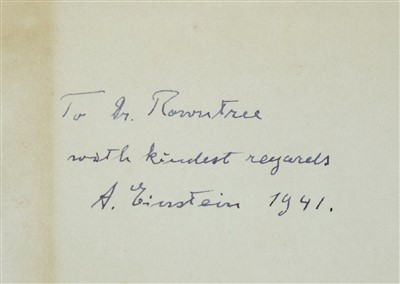 To Dr. Rowntree
with kindest regards
A. Einstein 1941.